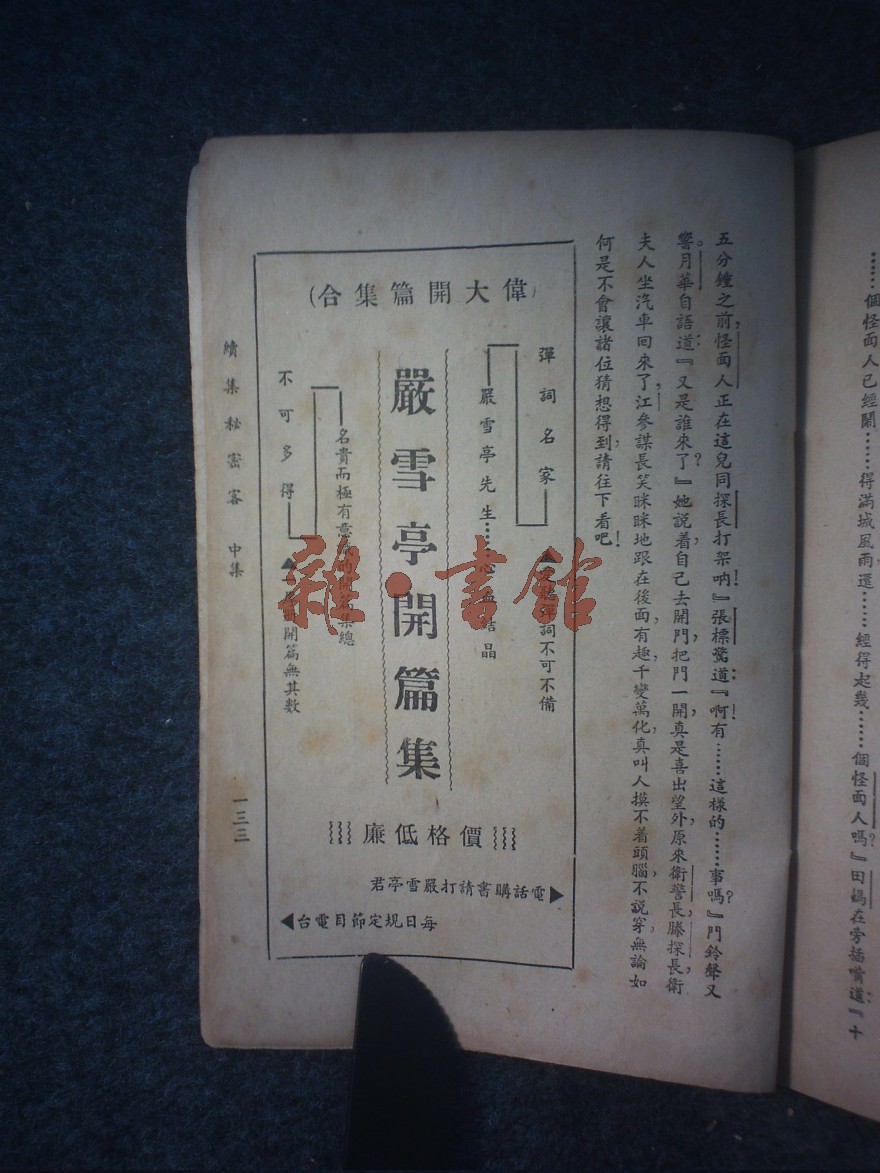 ……個怪面人已經鬧……得滿城風雨，還……經得起幾……個怪面人嗎？』田媽在旁插嘴道：『十
五分鐘之前，怪面人正在這兒同探長打架吶！』張標驚道：『啊！有……這樣的……事嗎？』門鈴聲又
響。月華自語道：『又是誰來了？』她說着，自己去開門，把門一開，真是喜出望外，原來衛警長，滕探長，衛
夫人坐汽車回來了，江參謀長笑眯眯地跟在後面，有趣，千變萬化，真叫人摸不着頭腦，不說穿，無論如
何是不會讓諸位猜想得到，請往下看吧！
(偉大開篇集合)
彈詞名家
▲彈詞不可不備
嚴雪亭先生……心血結晶
嚴雪亭開篇集
名貴而極有意的開篇集總
不可多得
▲開篇無其數
價格低廉
▶電話購書請打嚴雪亭君
每日規定節目電台◀
續集秘密客 中集
一三三
雜·書館